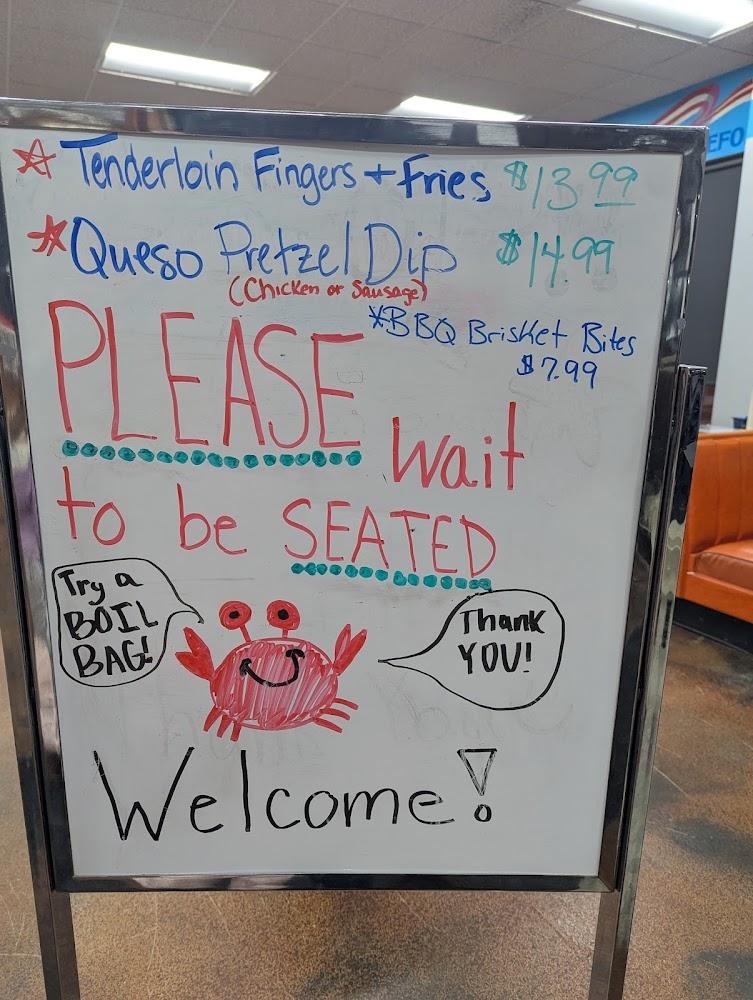 Tenderloin Fingers + Fries $13.99
Queso Pretzel Dip $14.99
(Chicken or Sausage)
*BBQ Brisket Bites
$7.99
PLEASE wait
to be SEATED
Try a
BOIL
BAG!
Thank
YOU!
Welcome!